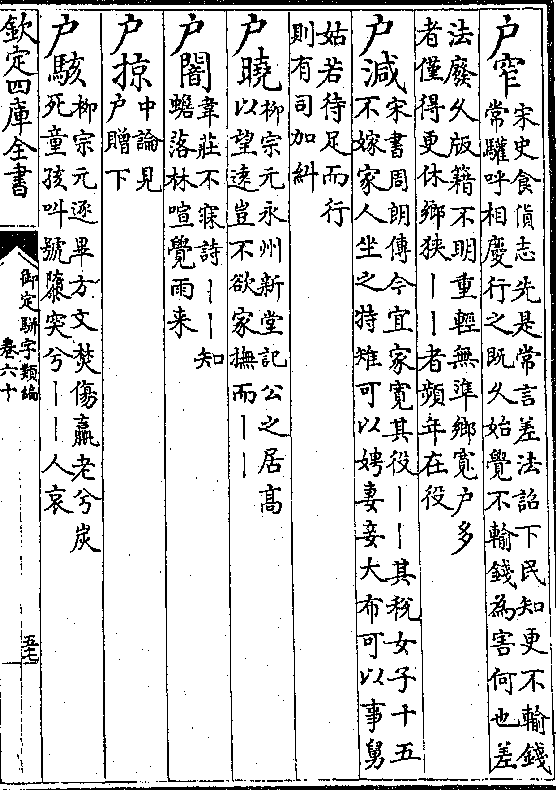 户窄
宋史食貨志先是常言差法詔下民知更不輸錢
常驩呼相慶行之既乆始覺不輸錢為害何也差
法廢乆版籍不明重輕無準鄉寛户多
者僅得更休鄉狹丨丨者頻年在役
户減
宋書周朗傳今宜家寛其役丨丨其税女子十五
不嫁家人坐之特雉可以娉妻妾大布可以事舅
姑若待足而行
則有司加糾
户曉
柳宗元永州新堂記公之居髙
以望逺豈不欲家撫而丨丨
户闇
韋莊不寐詩丨丨知
蟾落林喧覺雨来
户掠
中論見
户贈下
户駭
柳宗元逐畢方文焚傷羸老兮炭
死童孩叫號隳突兮丨丨人哀
欽定四庫全書
御定駢字類編
卷六十
五七